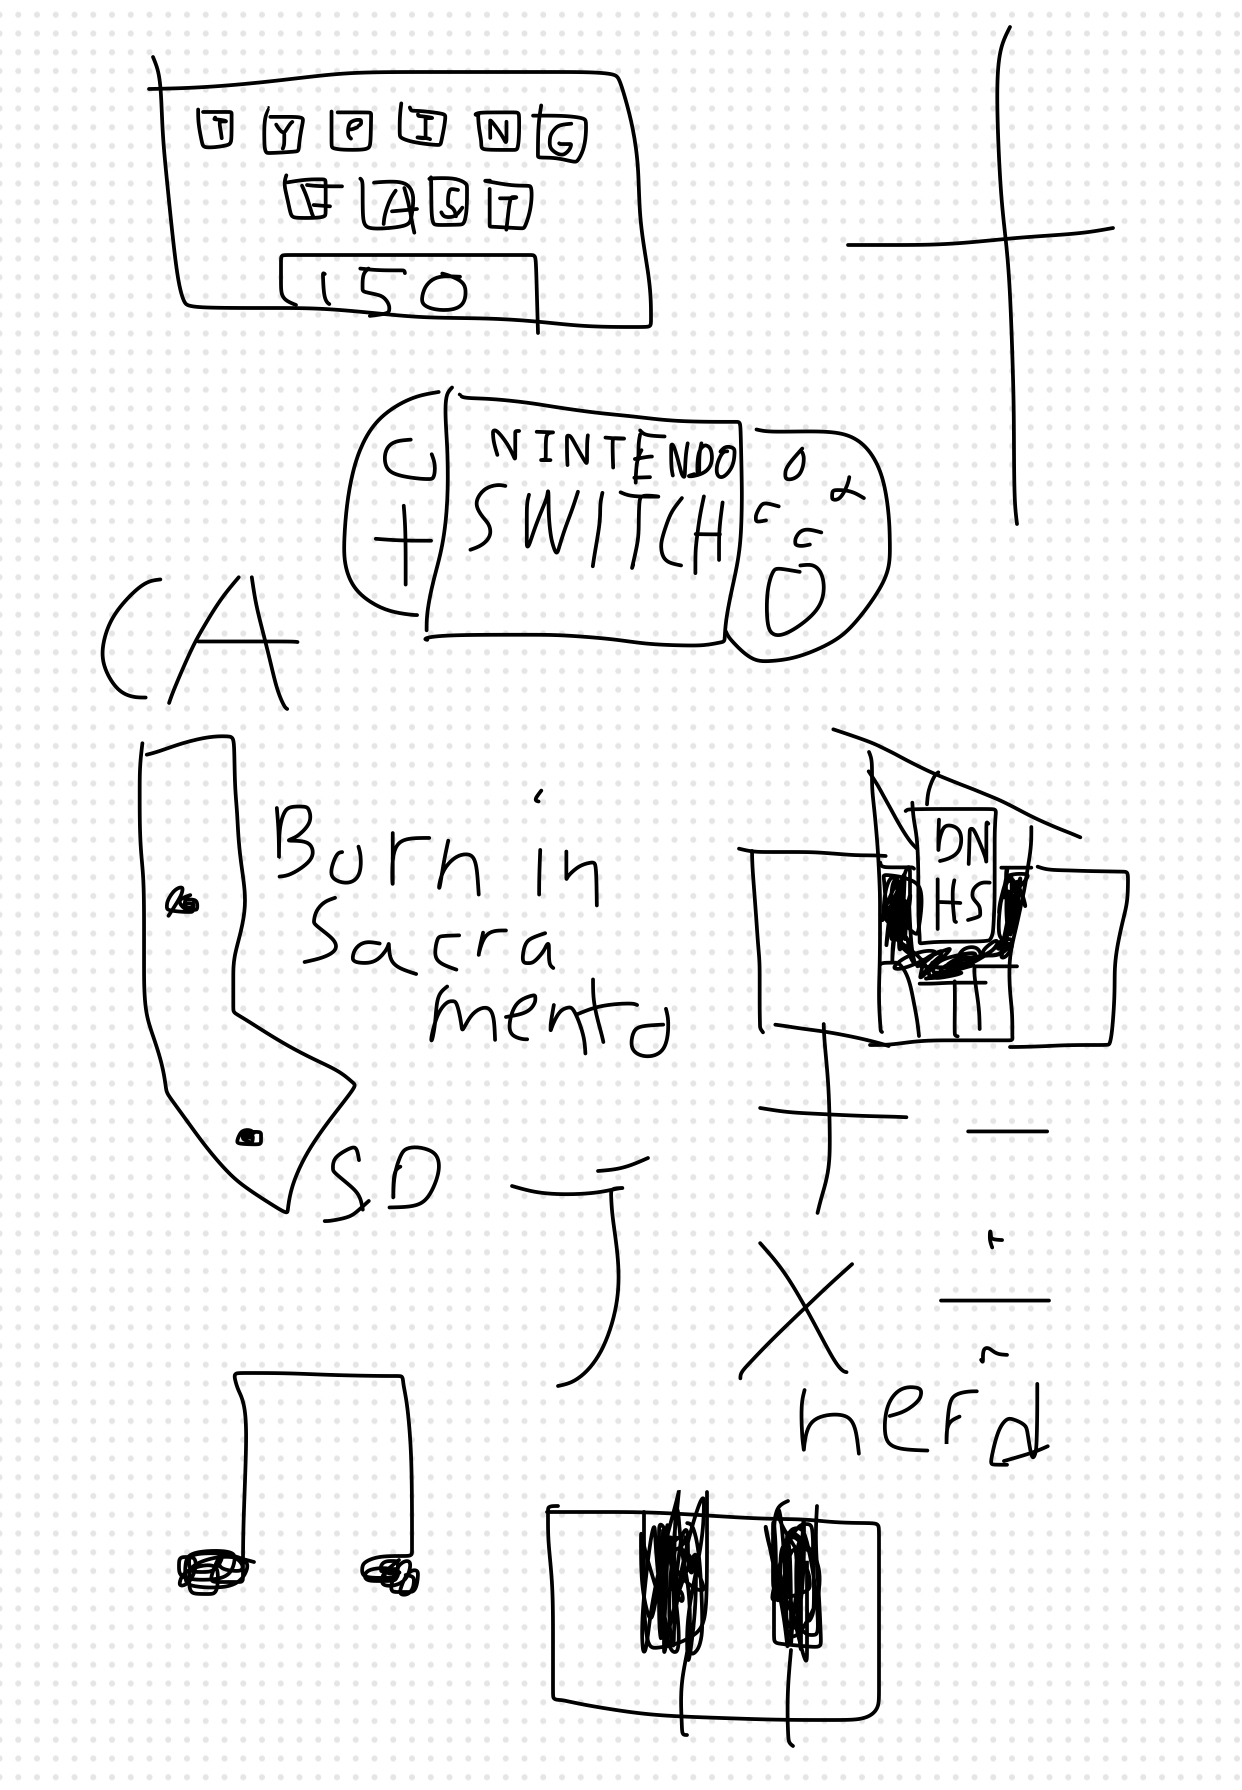 TYPING
FAST
150
NINTENDO
SWITCH
CA
Born in
Sacra
mento
SD
DN
HS
+ −
× ÷
nerd